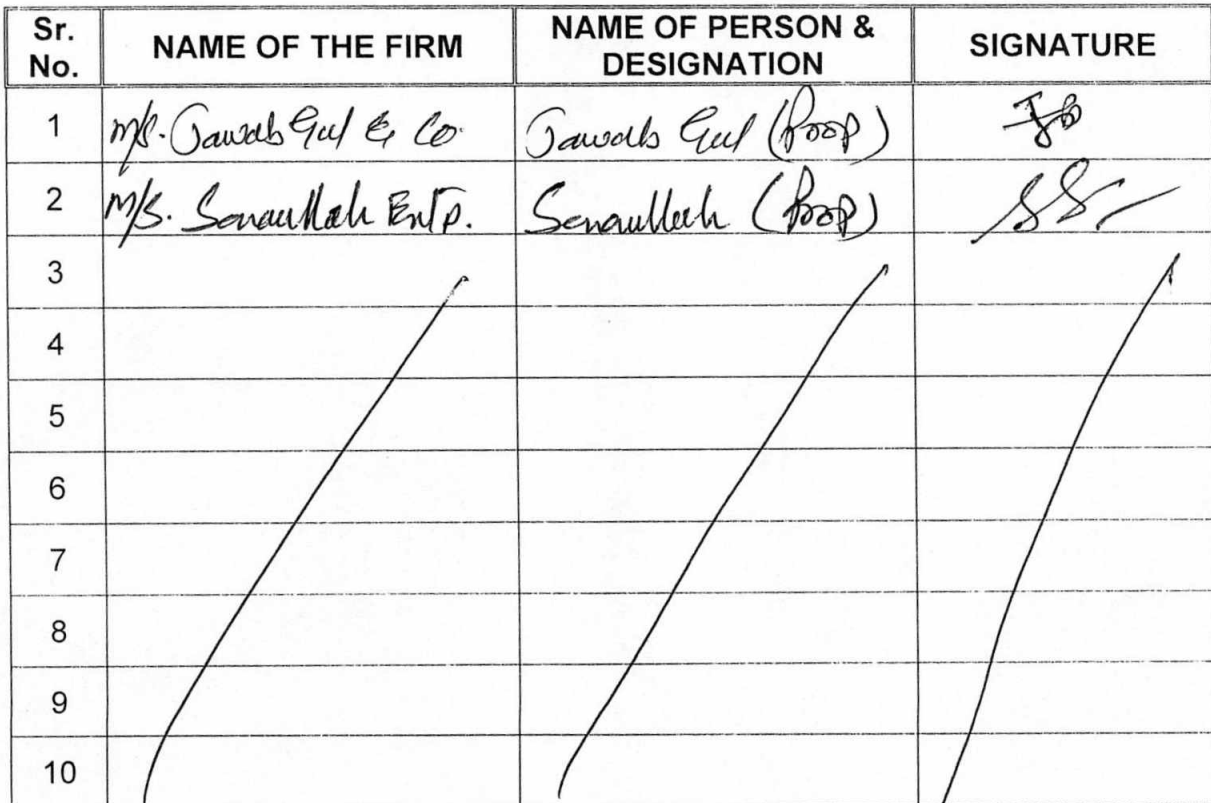 Sr. No. NAME OF THE FIRM NAME OF PERSON & DESIGNATION SIGNATURE
1 M/S. Jawab Gul & Co. Jawab Gul (Prop)
2 M/S. Sanaullah Entp. Sanaullah (Prop)
3
4
5
6
7
8
9
10